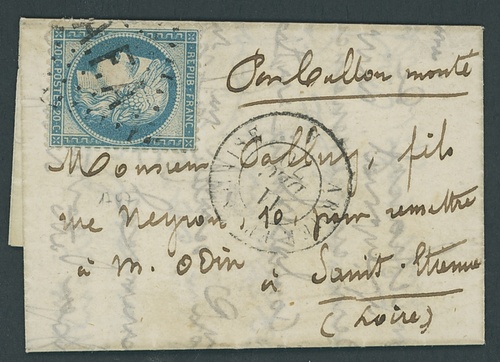 REPUB. FRANC.
20c POSTES 20c
Par Ballon monté
Monsieur fils
rue Neyron, 10, pour remettre
à M. Odin à Saint-Etienne
(Loire)